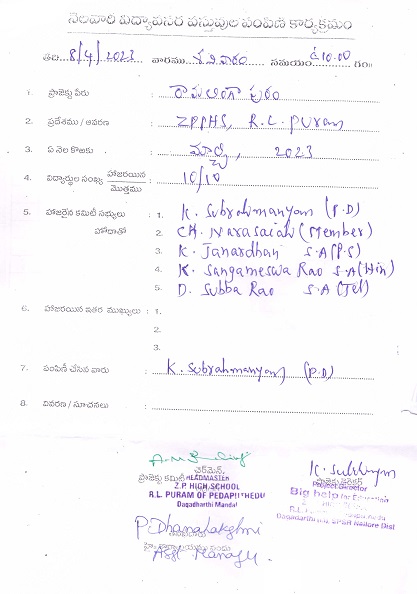 నెలవారి విద్యావసర వస్తువుల పంపిణి కార్యక్రమం
తేది: 8/4/2023 వారము శనివారం సమయం 10.00 గం॥
1. ప్రాజెక్టు పేరు : రామలింగా పురం
2. ప్రదేశము / ఆవరణ : ZPPHS, R.L. Puram
3. ఏ నెల కొఱకు : మార్చి, 2023
4. విద్యార్థుల సంఖ్య హాజరయిన / మొత్తము : 10/10
5. హాజరైన కమిటీ సభ్యులు : 1. K. Subrahmanyam (P.D)
హోదాతో 2. CH. Narasaiah (Member)
3. K. Janardhan S.A (P.S)
4. K. Sangameswa Rao S.A (Hin)
5. D. Subba Rao S.A (Tel)
6. హాజరయిన ఇతర ముఖ్యులు : 1.
2.
3.
7. పంపిణీ చేసిన వారు : K. Subrahmanyam (P.D)
8. వివరణ / సూచనలు :
ఛైర్మెన్,
ప్రాజెక్టు కమిటీ
HEADMASTER
Z.P HIGH SCHOOL
R.L. PURAM OF PEDAPUTHEDU
Dagadharthi Mandal
ప్రాజెక్టు డైరెక్టర్
Project Director
Big help for Education
P. Dhanalakshmi
Asst. Manager